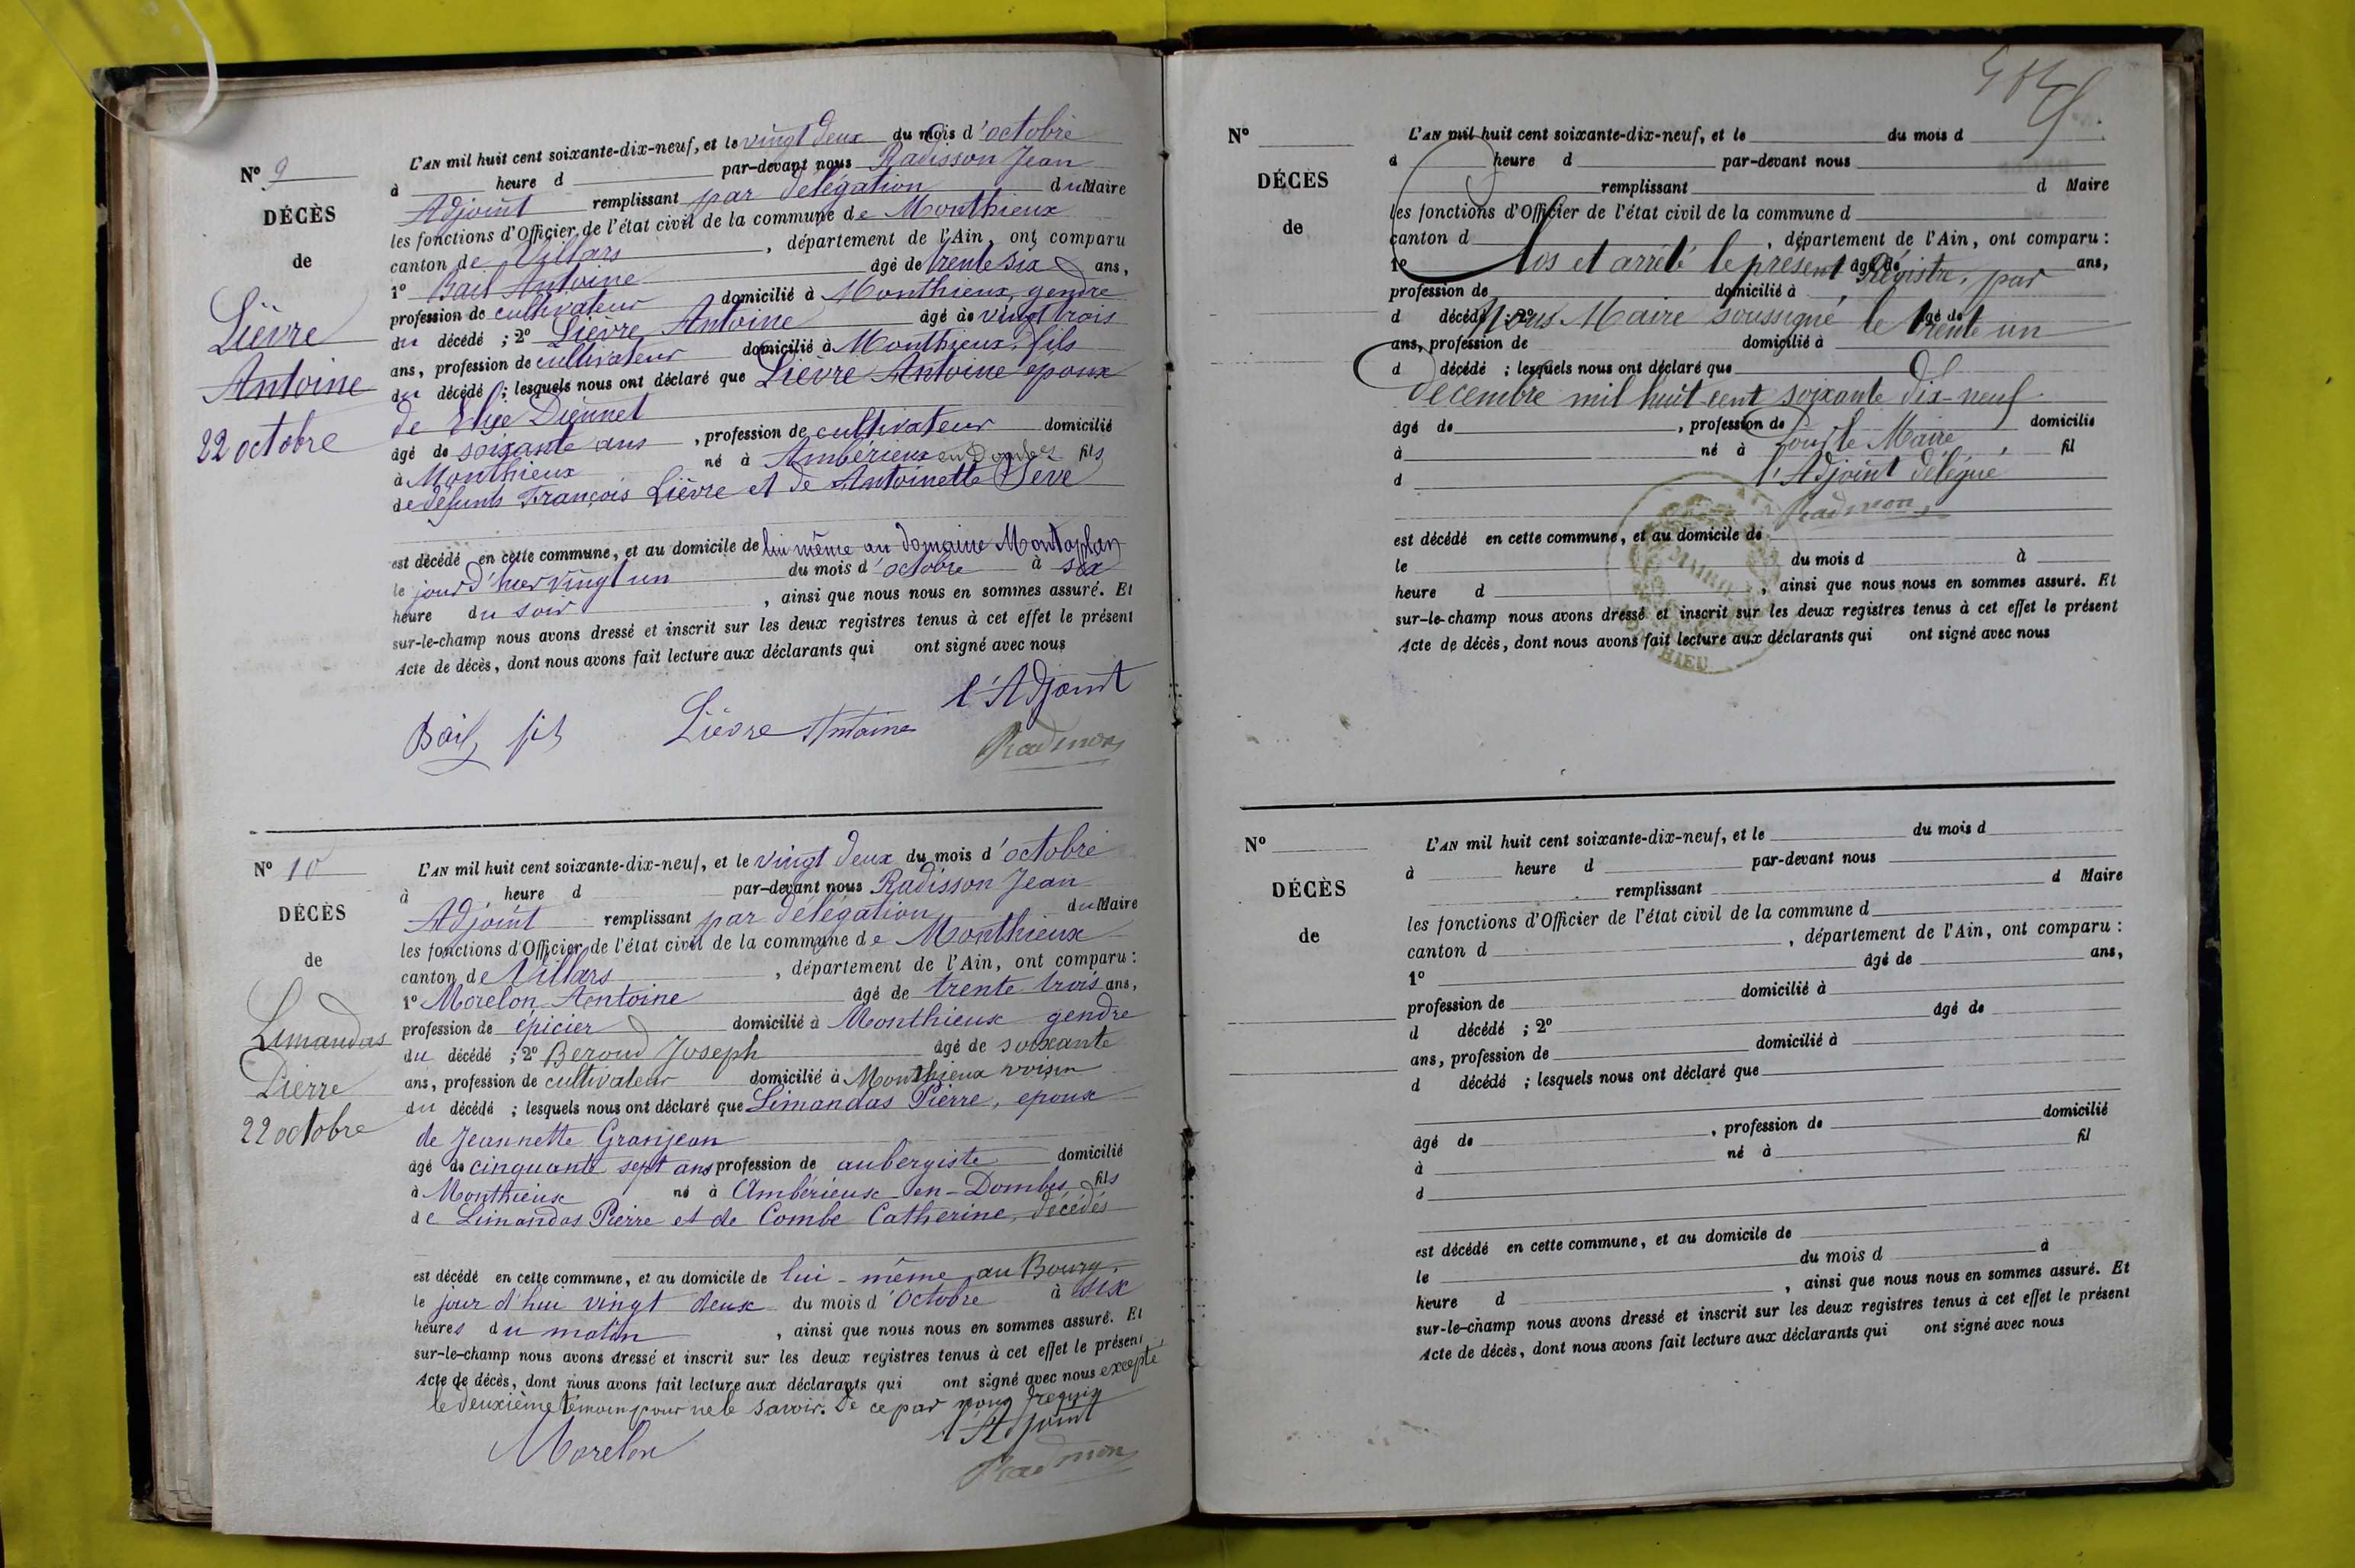 N° 9
DÉCÈS
de
Lièvre
Antoine
22 octobre
L'AN mil huit cent soixante-dix-neuf, et le vingt deux du mois d'octobre
à heure d par-devant nous Radisson Jean
Adjoint remplissant par délégation du Maire
les fonctions d'Officier de l'état civil de la commune de Monthieux
canton de Villars , département de l'Ain, ont comparu
1° Bail Antoine âgé de trente six ans,
profession de cultivateur domicilié à Monthieux, gendre
du décédé ; 2° Lièvre Antoine âgé de vingt trois
ans, profession de cultivateur domicilié à Monthieux, fils
du décédé ; lesquels nous ont déclaré que Lièvre Antoine epoux
de Elise Diennet
âgé de soixante ans , profession de cultivateur domicilié
à Monthieux né à Ambérieux en Dombes fils
de défunts François Lièvre et de Antoinette Seve
est décédé en cette commune, et au domicile de lui même au domaine Montaplan
le jour d'hier vingt un du mois d'octobre à six
heure du soir , ainsi que nous nous en sommes assuré. Et
sur-le-champ nous avons dressé et inscrit sur les deux registres tenus à cet effet le présent
Acte de décès, dont nous avons fait lecture aux déclarants qui ont signé avec nous
l'Adjoint
Bail fils Lièvre Antoine
N° 10
DÉCÈS
de
Limandas
Pierre
22 octobre
L'AN mil huit cent soixante-dix-neuf, et le vingt deux du mois d'octobre
à heure d par-devant nous Radisson Jean
Adjoint remplissant par délégation du Maire
les fonctions d'Officier de l'état civil de la commune de Monthieux
canton de Villars , département de l'Ain, ont comparu :
1° Morelon Antoine âgé de trente trois ans,
profession de épicier domicilié à Monthieux gendre
du décédé ; 2° Beroud Joseph âgé de soixante
ans, profession de cultivateur domicilié à Monthieux voisin
du décédé ; lesquels nous ont déclaré que Limandas Pierre, epoux
de Jeannette Granjean
âgé de cinquante sept ans profession de aubergiste domicilié
à Monthieux né à Ambérieux-en-Dombes fils
de Limandas Pierre et de Combe Catherine, décédés
est décédé en cette commune, et au domicile de lui-même au Bourg,
le jour d'hui vingt deux du mois d'Octobre à six
heures du matin , ainsi que nous nous en sommes assuré. Et
sur-le-champ nous avons dressé et inscrit sur les deux registres tenus à cet effet le présent
Acte de décès, dont nous avons fait lecture aux déclarants qui ont signé avec nous excepté
le deuxième témoin pour ne le savoir. De ce par nous requis
l'Adjoint
Morelon
N°
DÉCÈS
de
L'AN mil huit cent soixante-dix-neuf, et le du mois d
à heure d par-devant nous
remplissant d Maire
les fonctions d'Officier de l'état civil de la commune d
canton d , département de l'Ain, ont comparu :
1° âgé de ans,
Clos et arrêté le présent Régistre, par
profession de domicilié à
d décédé ; 2° âgé de
Nous Maire soussigné le trente un
ans, profession de domicilié à
d décédé ; lesquels nous ont déclaré que
Décembre mil huit cent soixante dix-neuf
âgé de , profession de domicilié
Pour le Maire,
à né à fil
l'Adjoint délégué
d
est décédé en cette commune, et au domicile de
le du mois d à
MAIRIE
heure d , ainsi que nous nous en sommes assuré. Et
sur-le-champ nous avons dressé et inscrit sur les deux registres tenus à cet effet le présent
Acte de décès, dont nous avons fait lecture aux déclarants qui ont signé avec nous
N°
DÉCÈS
de
L'AN mil huit cent soixante-dix-neuf, et le du mois d
à heure d par-devant nous
remplissant d Maire
les fonctions d'Officier de l'état civil de la commune d
canton d , département de l'Ain, ont comparu :
1° âgé de ans,
profession de domicilié à
d décédé ; 2° âgé de
ans, profession de domicilié à
d décédé ; lesquels nous ont déclaré que
âgé de , profession de domicilié
à né à fil
d
est décédé en cette commune, et au domicile de
le du mois d à
heure d , ainsi que nous nous en sommes assuré. Et
sur-le-champ nous avons dressé et inscrit sur les deux registres tenus à cet effet le présent
Acte de décès, dont nous avons fait lecture aux déclarants qui ont signé avec nous